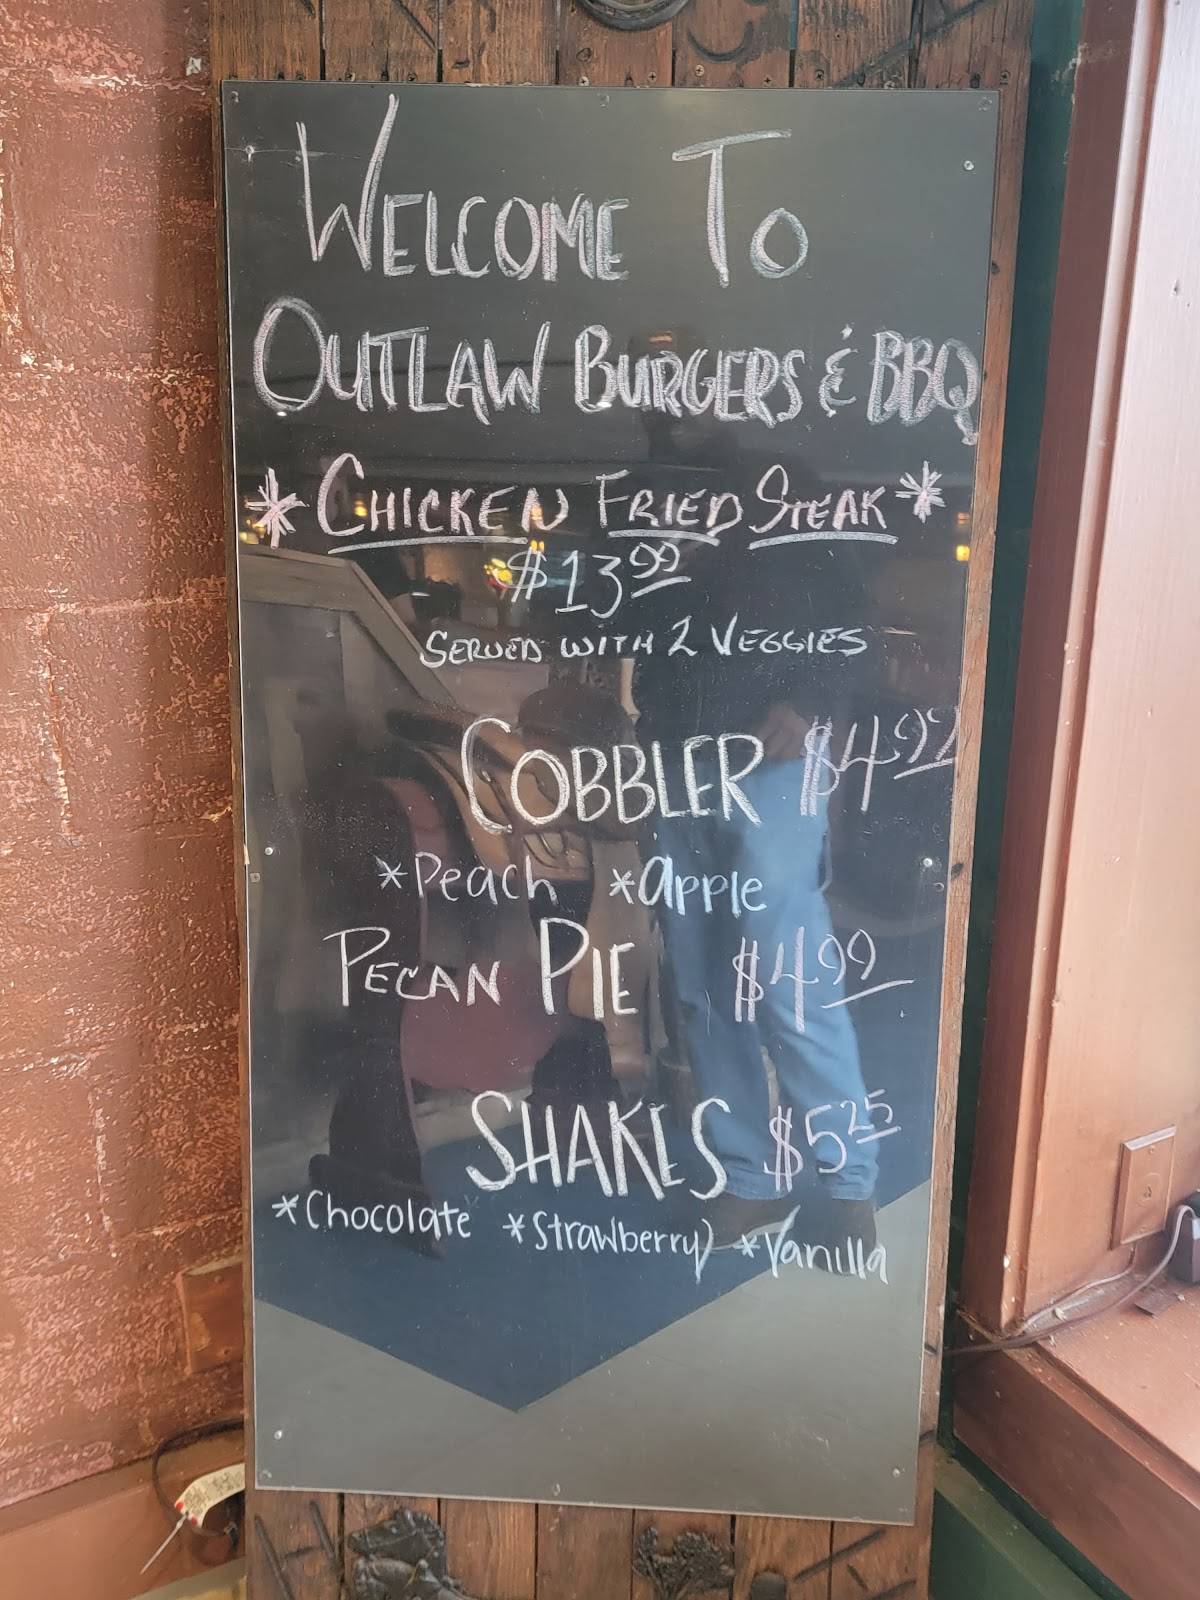 WELCOME TO
OUTLAW BURGERS & BBQ
*CHICKEN FRIED STEAK*
$13.99
SERVED WITH 2 VEGGIES
COBBLER $4.99
*Peach *apple
PECAN PIE $4.99
SHAKES $5.25
*Chocolate *Strawberry *Vanilla